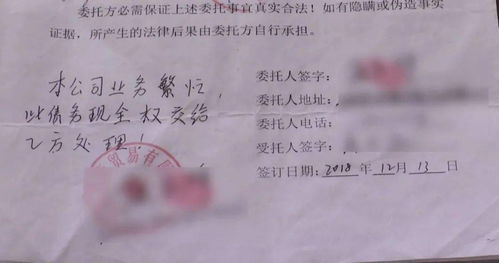 委托方必需保证上述委托事宜真实合法！如有隐瞒或伪造事实
证据，所产生的法律后果由委托方自行承担。
本公司业务繁忙，
此债务现全权交给
乙方处理！
贸易有
委托人签字：
委托人地址：
委托人电话：
受托人签字：
签订日期：2018年12月13日